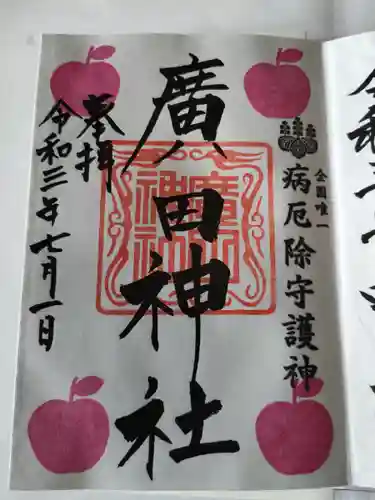 全国唯一
病厄除守護神
廣田神社
奉拝
令和三年七月一日
廣田
神社